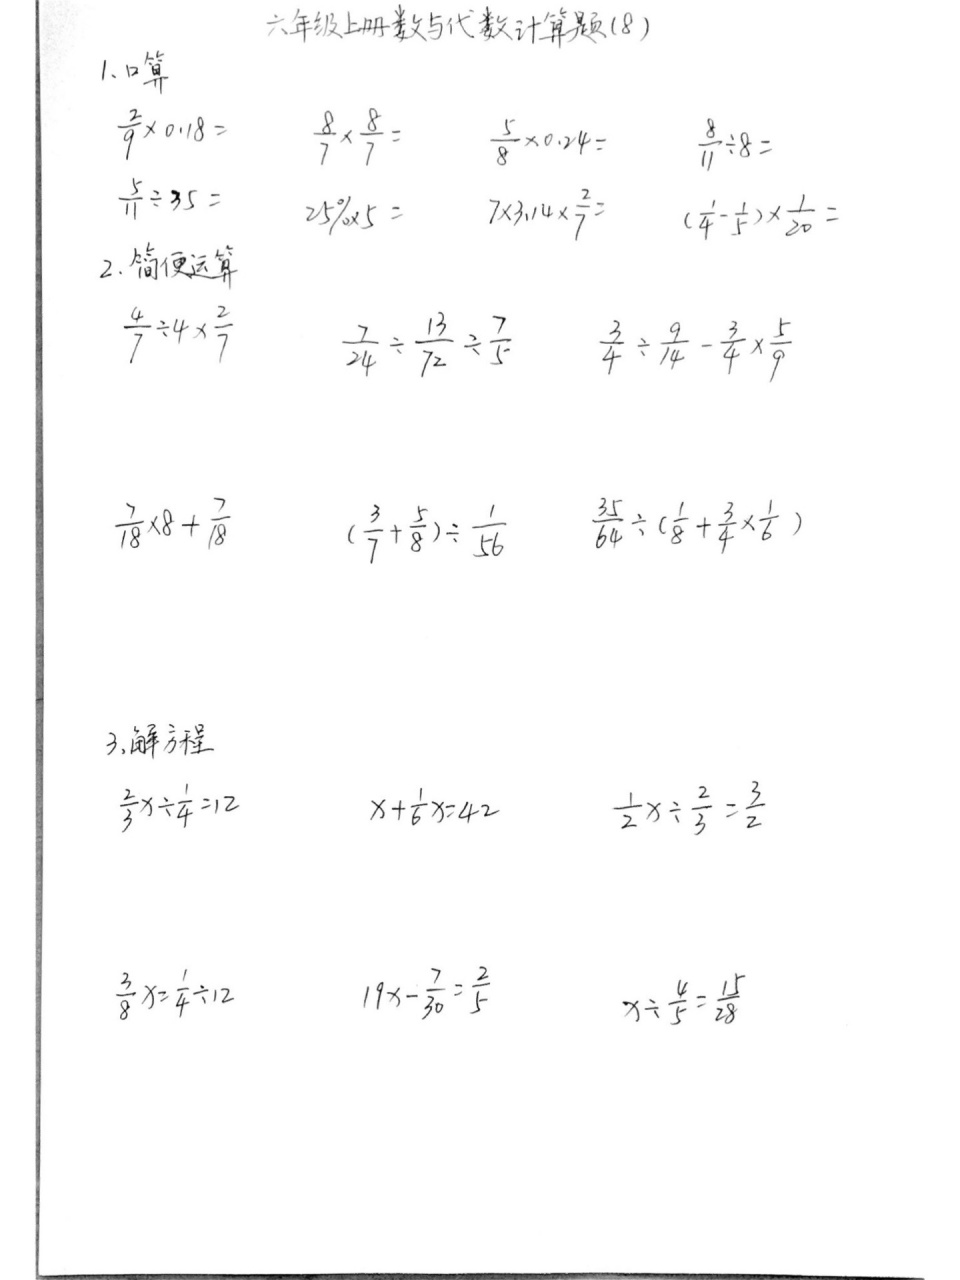 六年级上册数与代数计算题(8)
1、口算
2/9×0.18= 8/7×8/7= 5/8×0.24= 8/11÷8=
5/11÷35= 25%×5= 7×3.14×2/7= (1/4-1/5)×1/20=
2.简便运算
4/7÷4×2/7 7/24÷13/72÷7/5 3/4÷9/14-3/4×5/9
7/18×8+7/18 (3/7+5/8)÷1/56 35/64÷(1/8+3/4×1/6)
3、解方程
2/3x÷1/4=12 x+1/6x=42 1/2x÷2/3=3/2
3/8x=1/4÷12 19x-7/30=2/5 x÷4/5=15/28